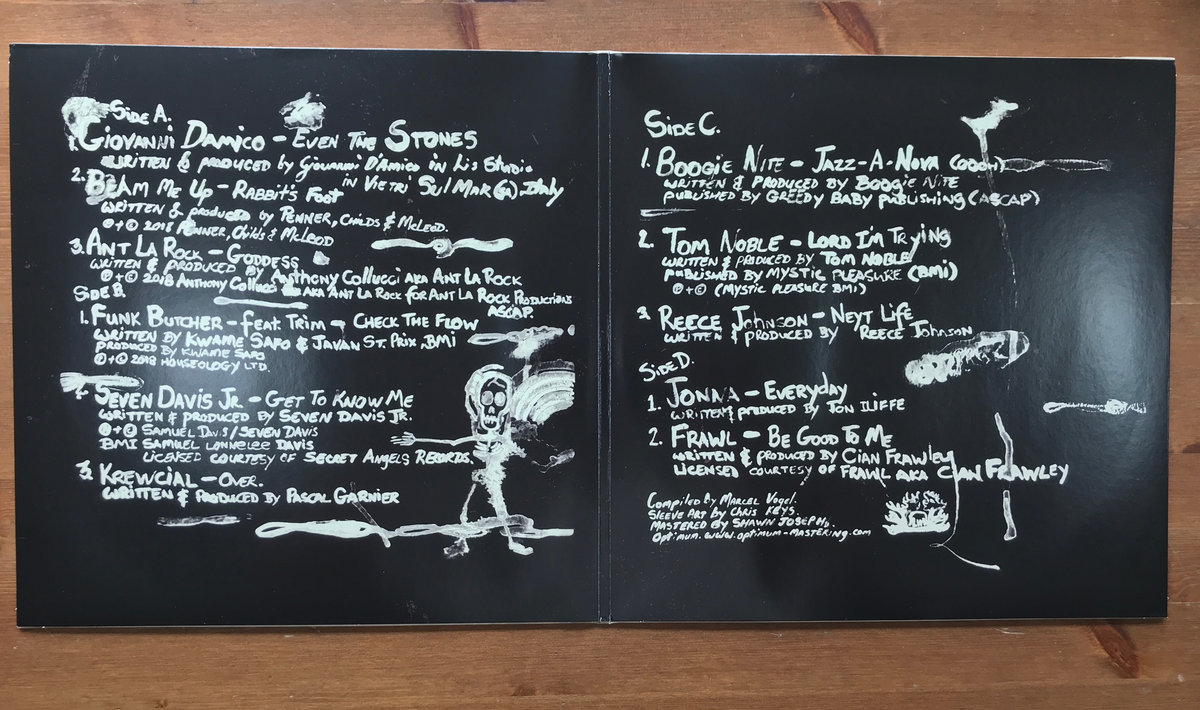 Side A.
1. Giovanni Damico – Even The Stones
written & produced by Giovanni D'Amico in his Studio
in Vietri Sul Mar (SA), Italy
2. Beam Me Up – Rabbit's Foot
written & produced by Penner, Childs & McLeod.
℗+© 2018 Penner, Childs & McLeod
3. Ant La Rock – Goddess
written & produced by Anthony Collucci aka Ant La Rock
℗+© 2018 Anthony Collucci aka Ant La Rock for Ant La Rock Productions
ASCAP.
Side B.
1. Funk Butcher – feat. Trim – Check The Flow
written by Kwame Safo & Javan St. Prix, BMI
produced by Kwame Safo
℗+© 2018 Houseology Ltd.
2. Seven Davis Jr – Get To Know Me
written & produced by Seven Davis Jr.
℗+© Samuel Davis/Seven Davis
BMI Samuel Lonnelee Davis
Licensed courtesy of Secret Angels Records.
3. Krewcial – Over.
written & produced by Pascal Garnier
Side C.
1. Boogie Nite – Jazz-A-Nova (oooh)
written & produced by Boogie Nite
published by Greedy Baby Publishing (ASCAP)
2. Tom Noble – Lord I'm Trying
written & produced by Tom Noble
published by Mystic Pleasure (BMI)
℗+© (Mystic Pleasure BMI)
3. Reece Johnson – Neyt Life
written & produced by Reece Johnson
Side D.
1. Jonna – Everyday
written & produced by Ton Iliffe
2. Frawl – Be Good To Me
written & produced by Cian Frawley
Licensed courtesy of Frawl aka Cian Frawley
Compiled by Marcel Vogel.
Sleeve Art by Chris Keys.
Mastered by Shawn Joseph,
Optimum. www.optimum-mastering.com